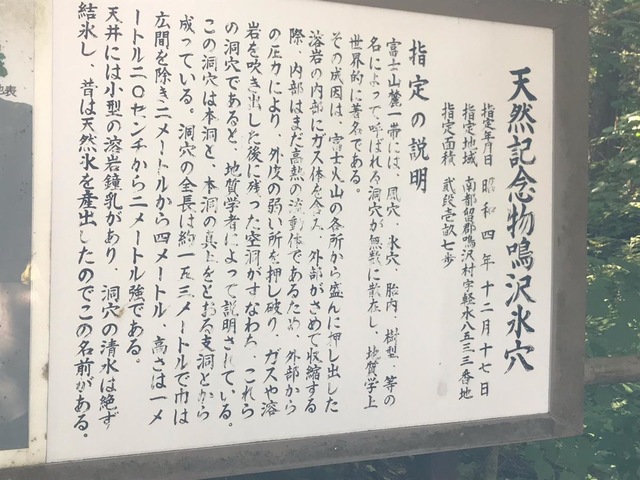 天然記念物鳴沢氷穴
指定年月日 昭和四年十二月十七日
指定地域 南都留郡鳴沢村字軽水八五三三番地
指定面積 貳段壱畝七歩
指定の説明
富士山麓一帯には、風穴、氷穴、胎内、樹型、等の
名によって呼ばれる洞穴が無数に散在し、地質学上
世界的に著名である。
その成因は、富士火山の各所から盛んに押し出した
溶岩の内部にガス体を含み、外部がさめて収縮する
際、内部はまだ高熱の流動体であるため、外部から
の圧力により、外皮の弱い所を押し破り、ガスや溶
岩を吹き出した後に残った空洞がすなわち、これら
の洞穴であると、地質学者によって説明されている。
この洞穴は本洞と、本洞の真上をとおる支洞とから
成っている。洞穴の全長は約一五三メートルで巾は
広間を除き二メートルから四メートル、高さは一メ
ートル二〇センチから二メートル強である。
天井には小型の溶岩鐘乳があり、洞穴の清水は絶ず
結氷し、昔は天然氷を産出したのでこの名前がある。
地表